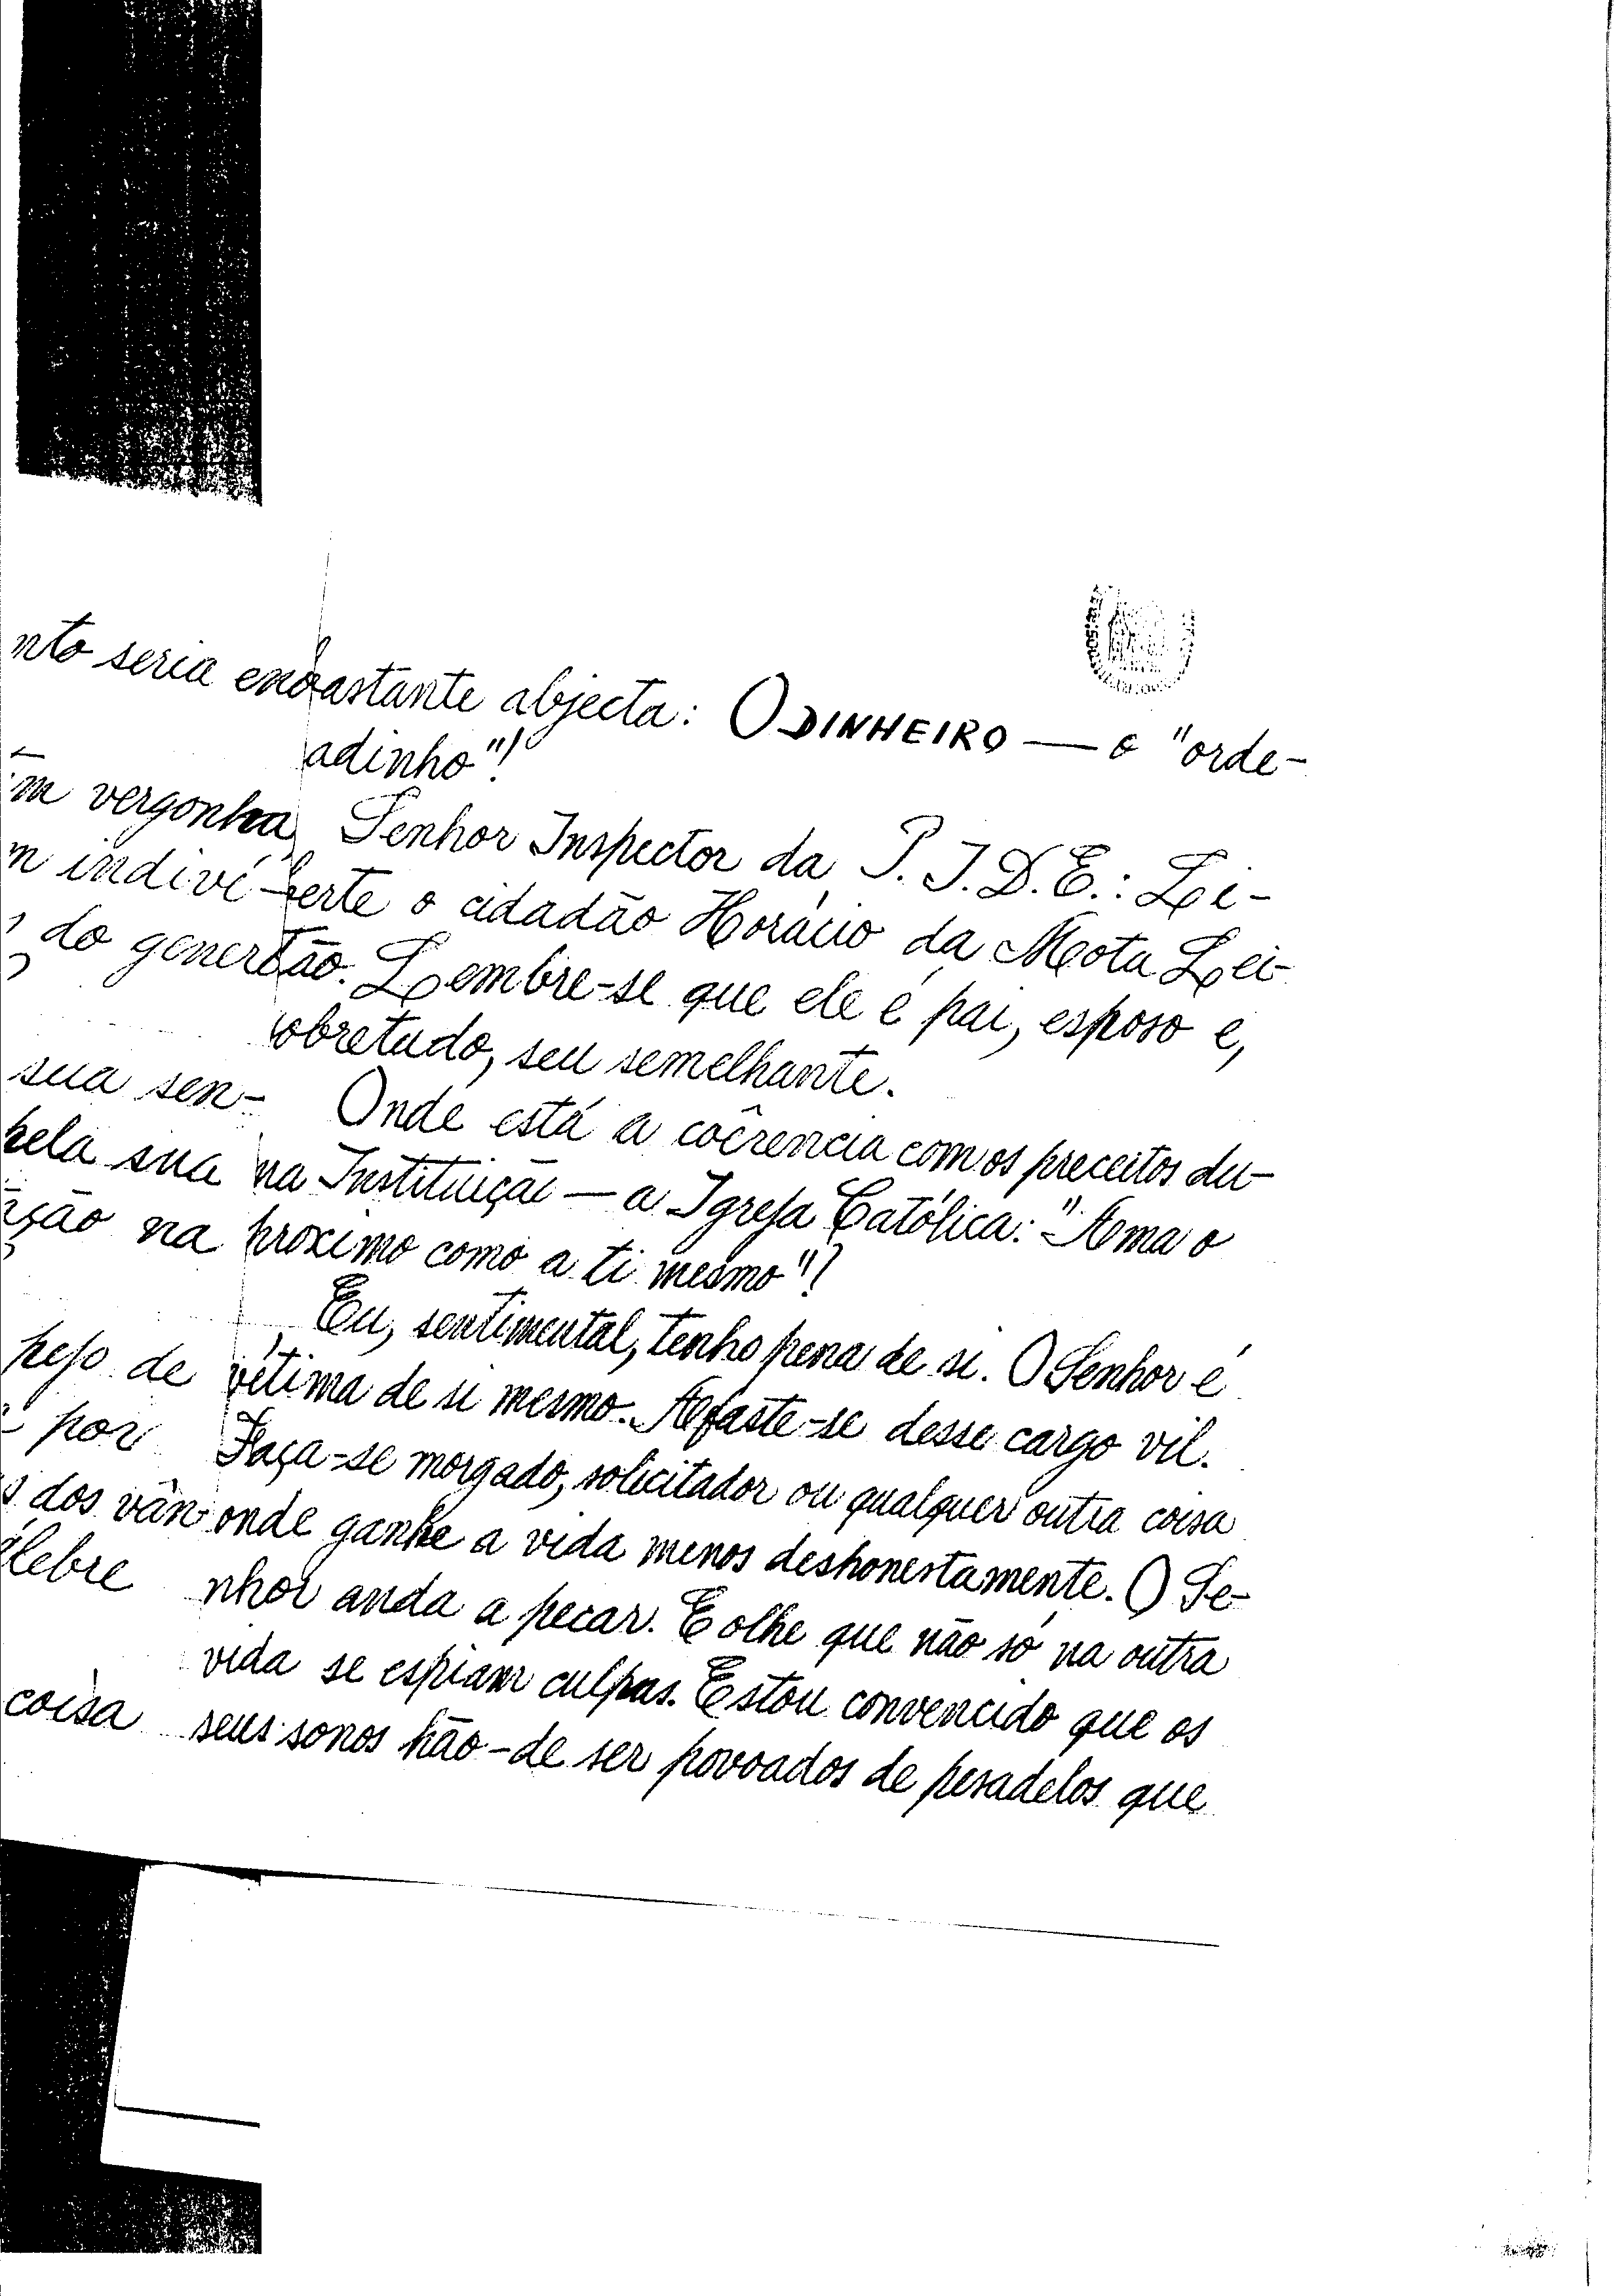 nto seria
vergonha
indiví-
do gener
sua sen-
pela sua
na
pejo de
por
dos
coisa
bastante abjecta: O DINHEIRO — o "orde-
adinho"!
Senhor Inspector da P.I.D.E.: Li-
berte o cidadão Horácio da Mota Lei-
tão. Lembre-se que ele é pai, esposo e,
sobretudo, seu semelhante.
Onde está a coêrencia com os preceitos du-
ma Instituição — a Igreja Católica: "Ama o
proximo como a ti mesmo"?
Eu, sentimental, tenho pena de si. O Senhor é
vítima de si mesmo. Afaste-se desse cargo vil.
Faça-se morgado, solicitador ou qualquer outra coisa
onde ganhe a vida menos deshonestamente. O Se-
nhor anda a pecar. E olhe que não só na outra
vida se espiam culpas. Estou convencido que os
seus sonos hão-de ser povoados de pesadelos que